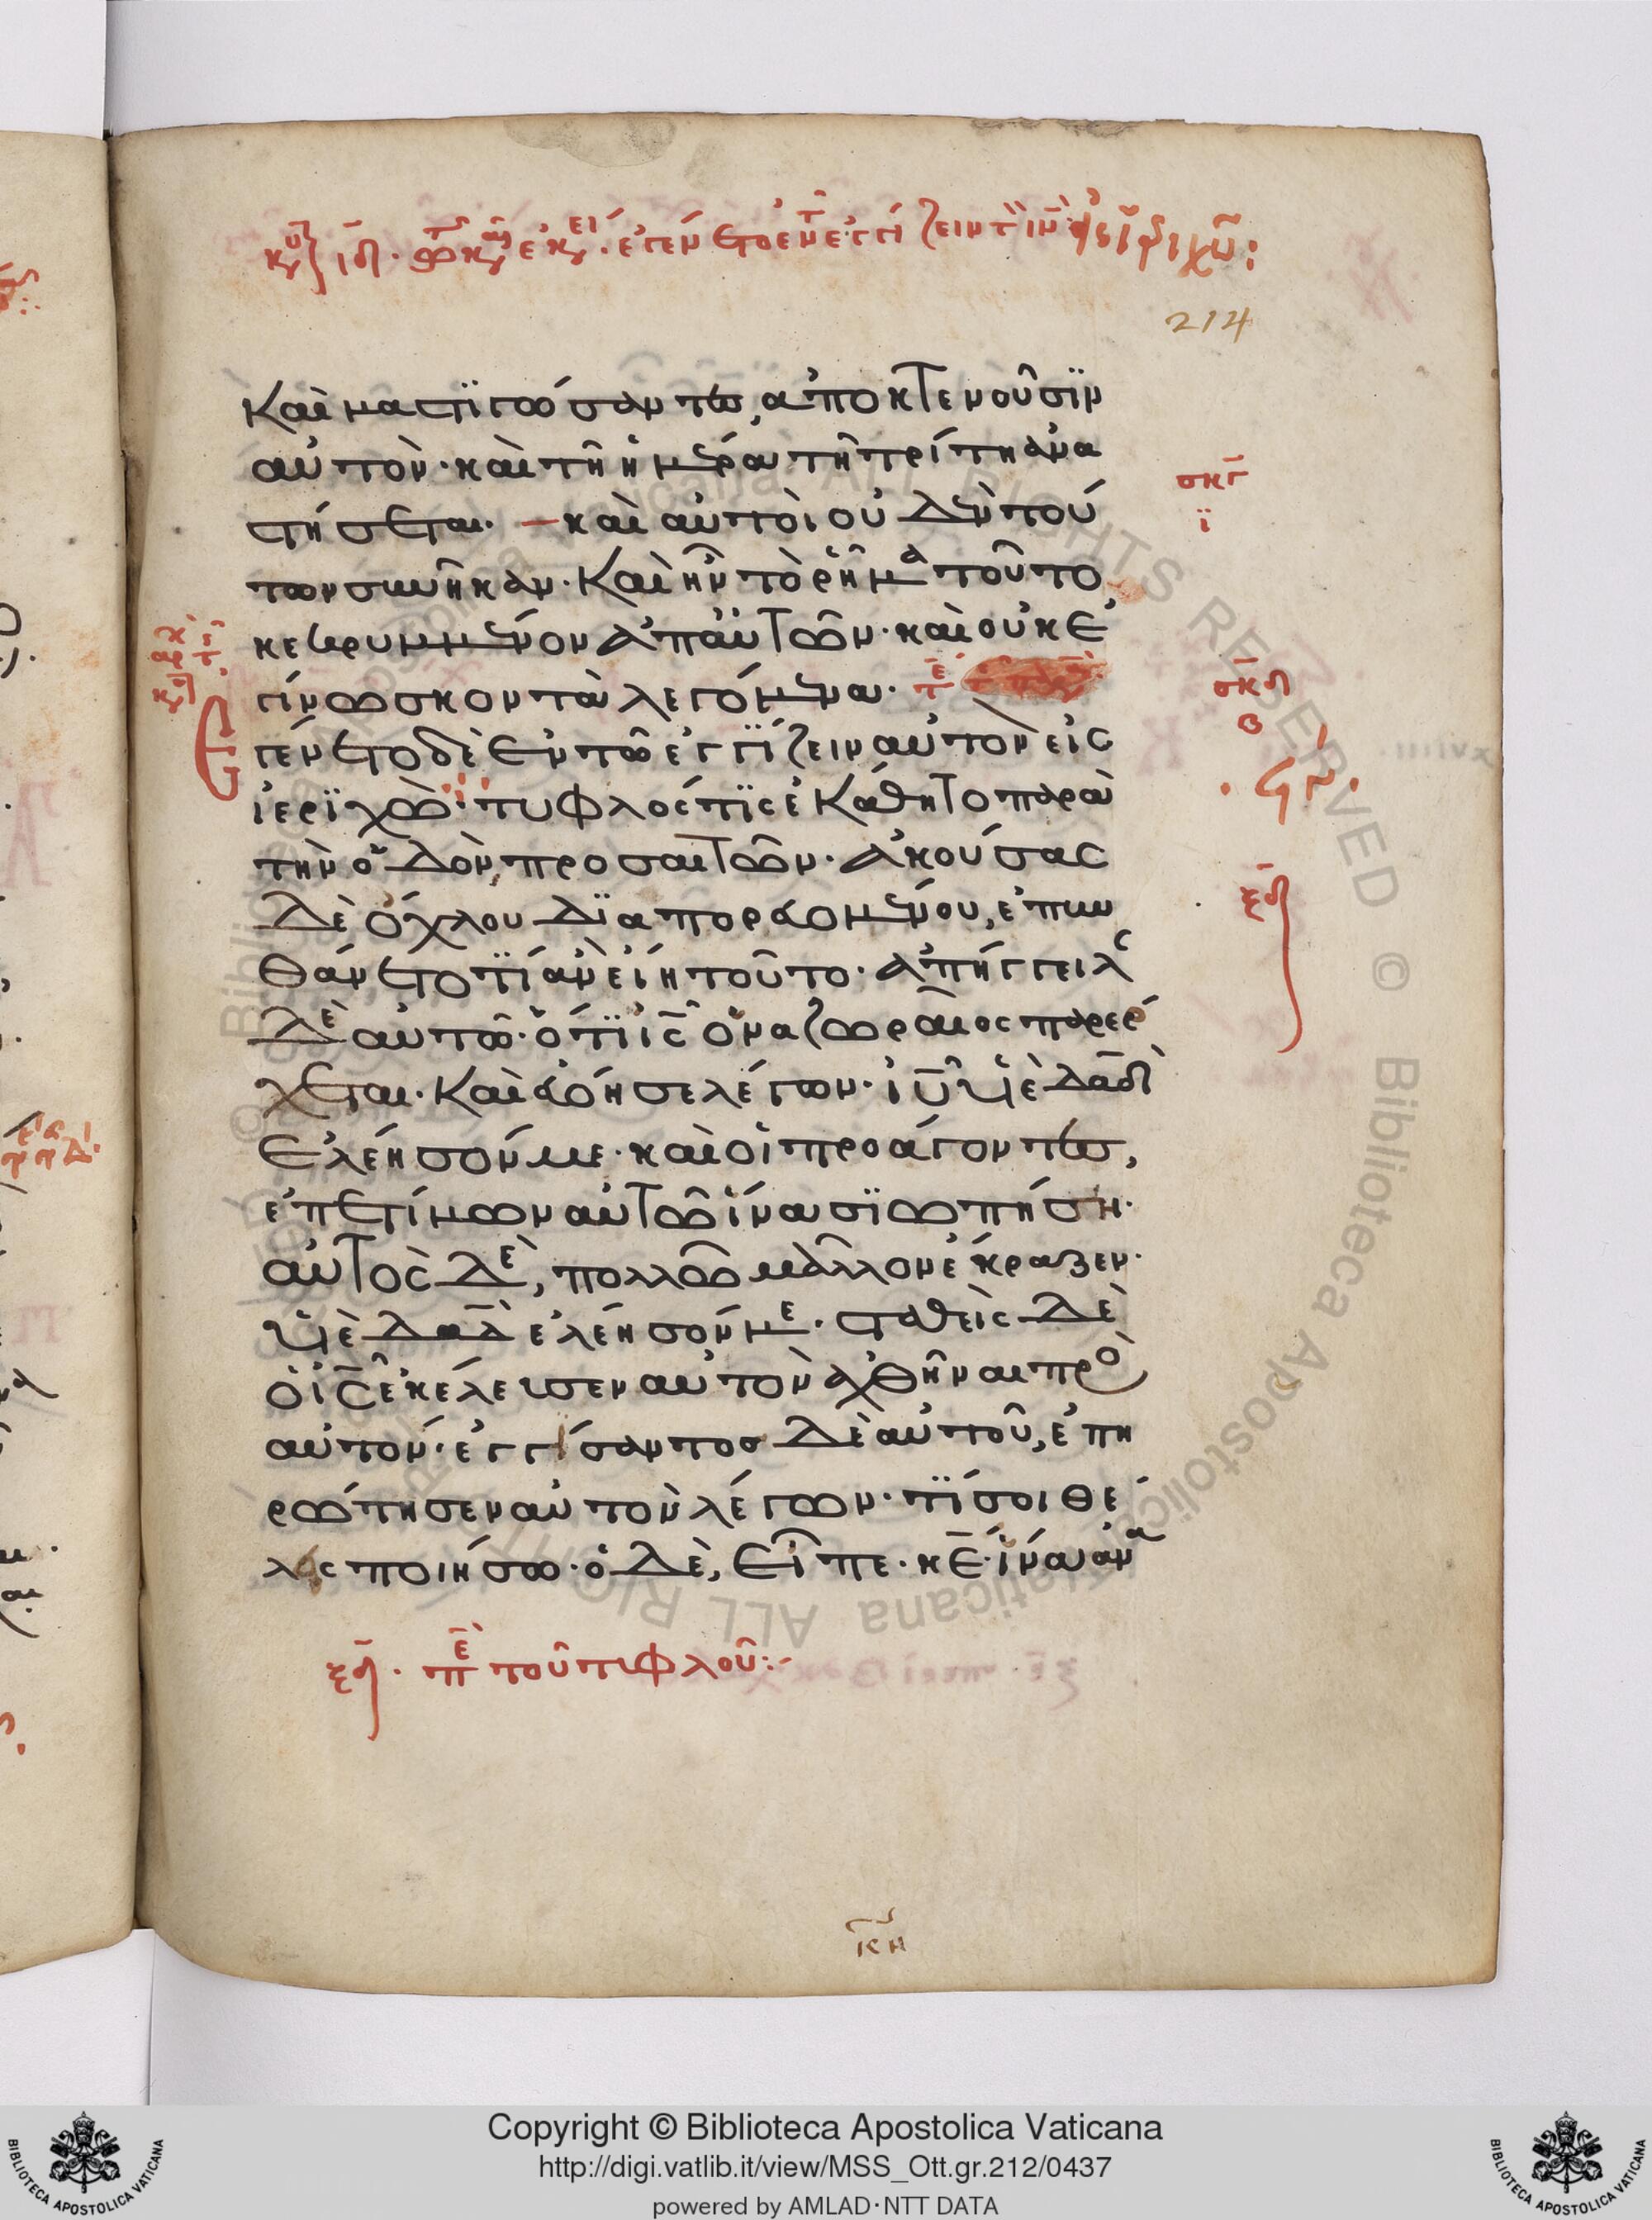 214
Καὶ μαστϊγώσαντες, ἀποκτενοῦσϊν
αὐτὸν· καὶ τῆ ἡμέρα τῆ τρίτη ἀνα
στήσεται. – καὶ αὐτοὶ οὐδὲν τού
των συνῆκαν. Καὶ ἦν τὸ ῥῆμα τοῦτο
κεκρυμμένον ἀπ' αὐτῶν· καὶ οὐκ ἐ
γίνωσκον τὰ λεγόμενα.
Ἐγένετο δὲ ἐν τῶ ἐγγίζειν αὐτὸν εἰς
ἱερϊχώ· τυφλός τϊς ἐκάθητο παρὰ
τὴν ὁδὸν, προσαιτῶν. ἀκούσας
δὲ ὄχλου δϊαπορευομένου, ἐπυν
θάνετο τί ἂν εἴη τοῦτο. ἀπήγγειλ
δὲ αὐτῶ· ὅτϊ ι̅ς̅ ὁ ναζωραῖος παρέρ
χεται. Καὶ ἐβόησε λέγων· ι̅υ̅ υἱὲ δ̅α̅δ̅
ἐλέησόν με. καὶ οἱ προάγοντες,
ἐπετίμων αὐτῶ ἵνα σϊωπήση.
αὐτὸς δὲ, πολλῶ μᾶλλον ἔκραζεν.
υἱὲ δ̅α̅δ̅ ἐλέησόν με. σταθεὶς δὲ
ὁ ι̅ς̅ ἐκέλευσεν αὐτὸν ἀχθῆναι πρὸ
αὐτόν. ἐγγίσαντος δὲ αὐτοῦ, ἐπη
ρώτησεν αὐτὸν λέγων· τί σοι θέ
λεις ποιήσω. ὁ δὲ, εἶπε. κ̅ε̅. ἵνα ἀνα
σκγ
ϊ
σκδ
β
ξδ
ξδ. πε τοῦ τυφλοῦ:-
κη
Copyright © Biblioteca Apostolica Vaticana
http://digi.vatlib.it/view/MSS_Ott.gr.212/0437
powered by AMLAD·NTT DATA
BIBLIOTECA APOSTOLICA VATICANA
BIBLIOTECA APOSTOLICA VATICANA